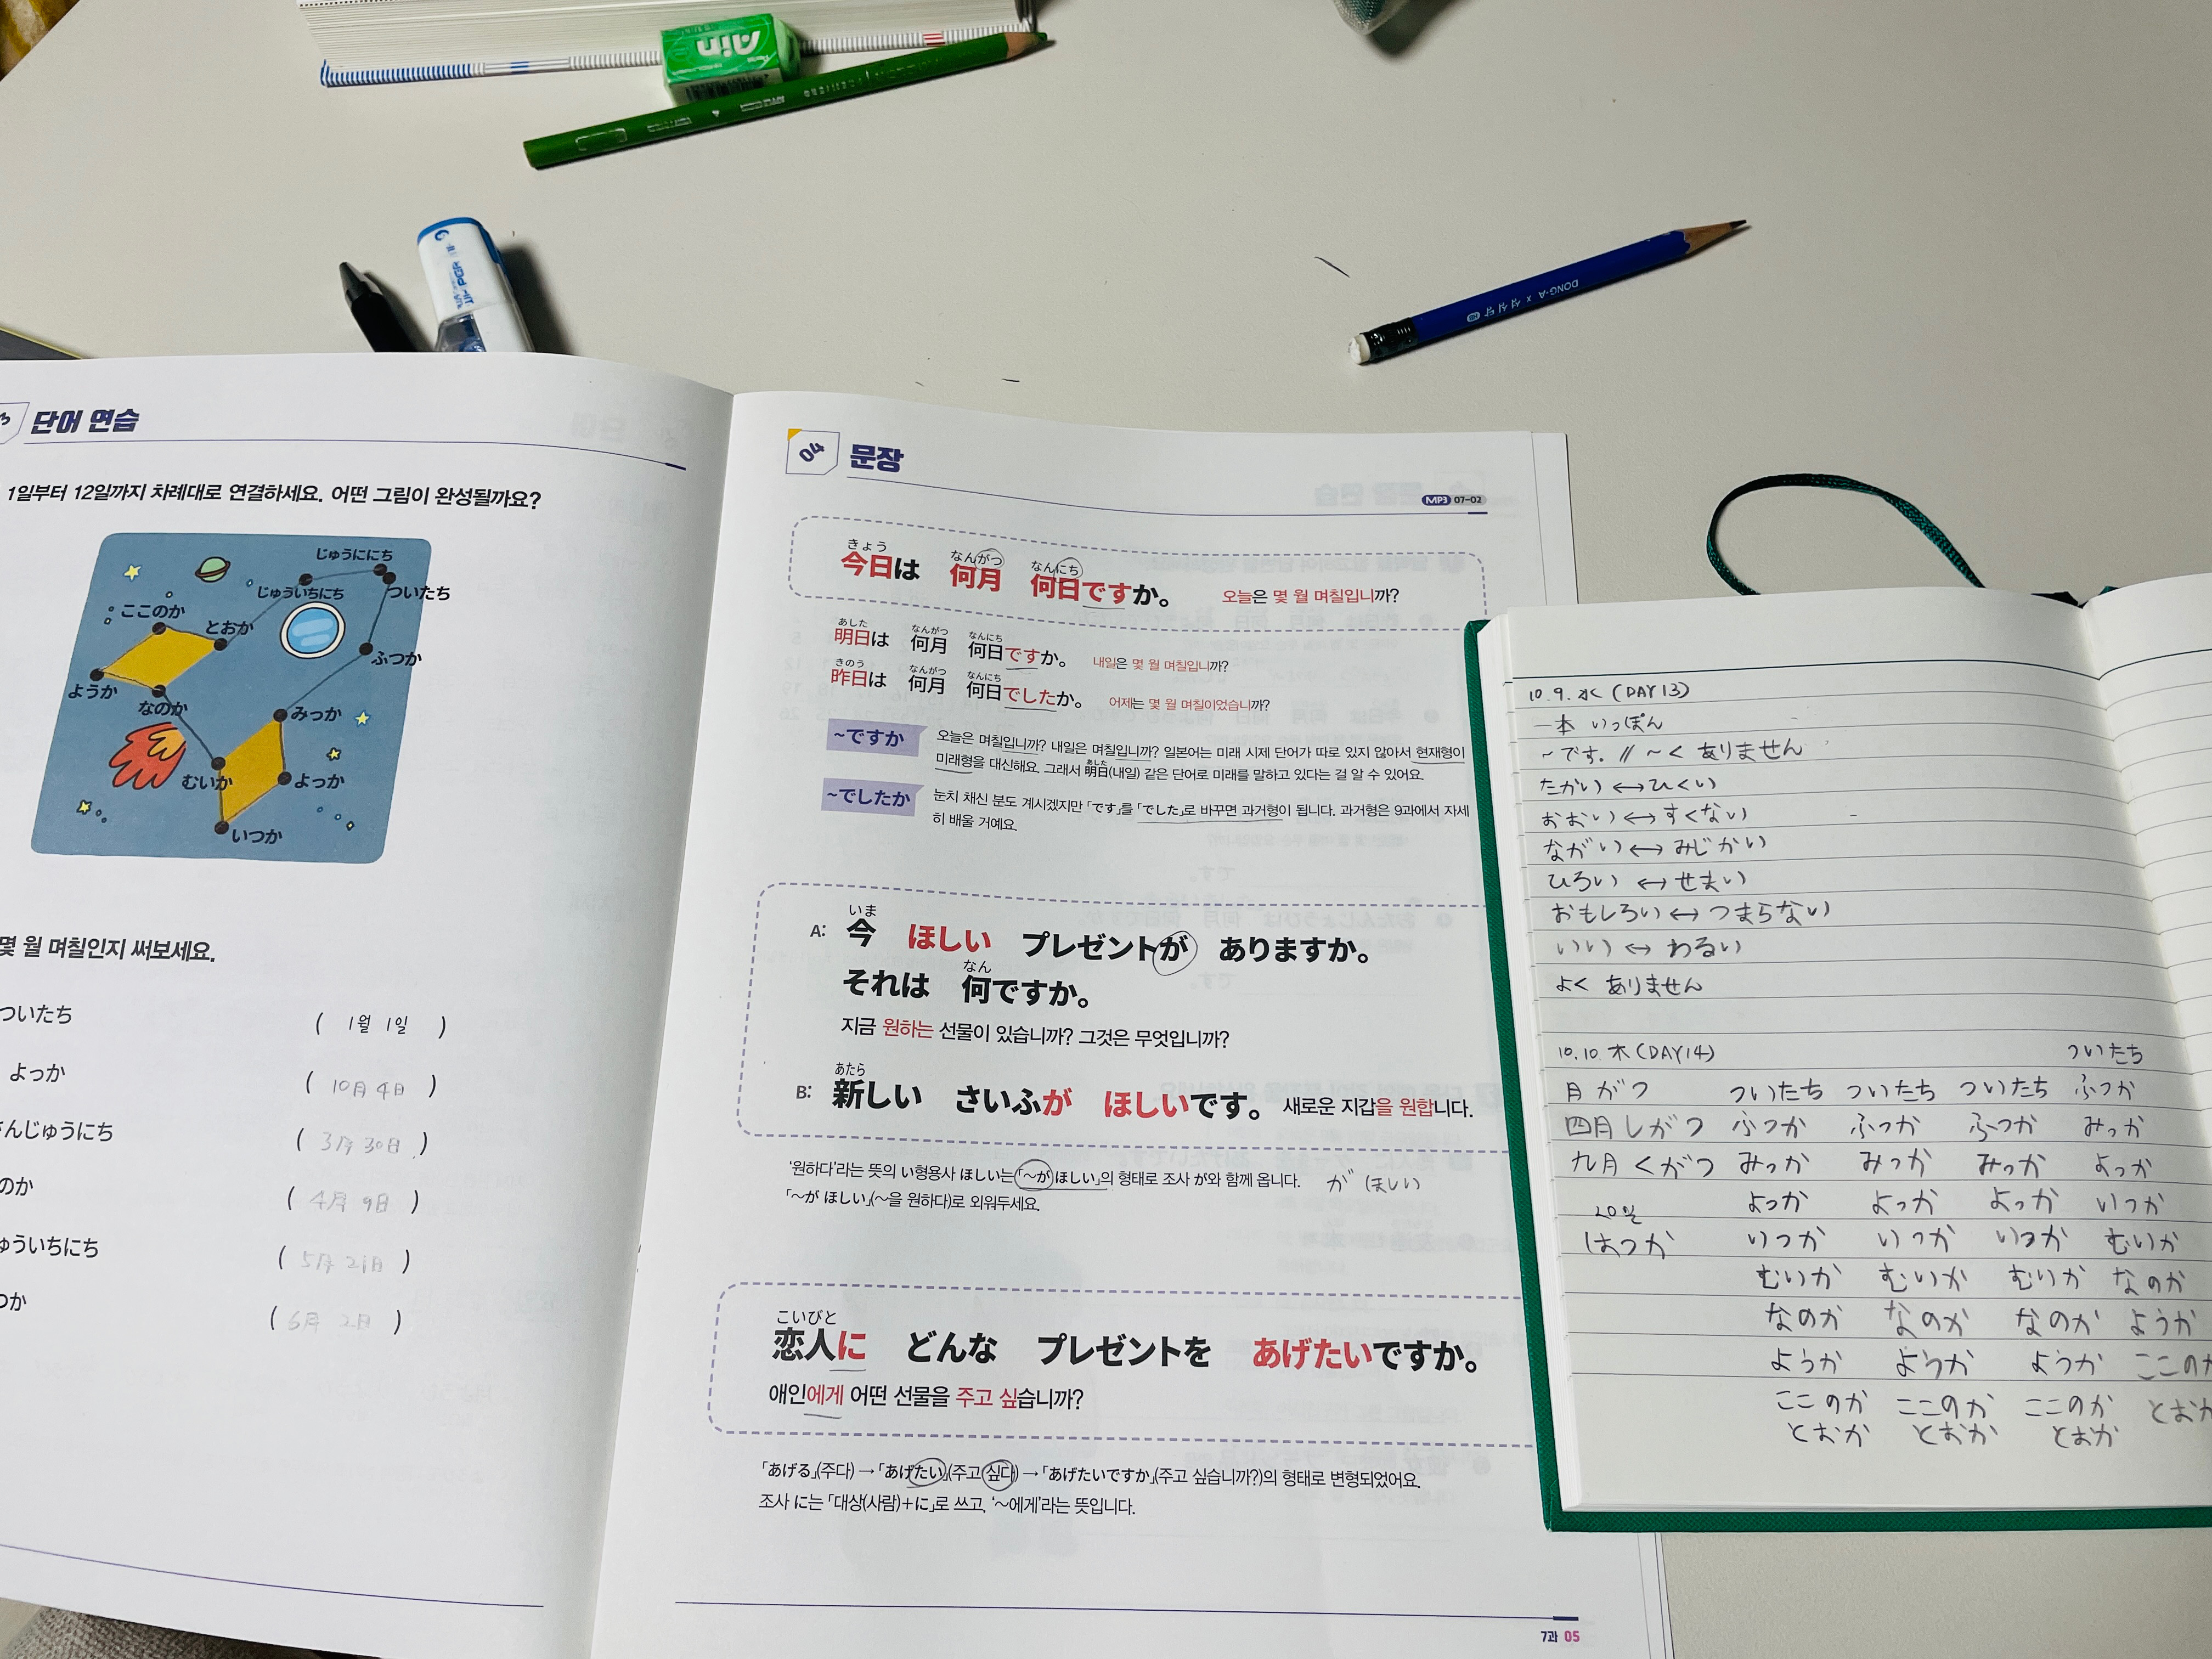 Ain
DONG-A x 성심당
단어 연습
1일부터 12일까지 차례대로 연결하세요. 어떤 그림이 완성될까요?
じゅうににち
じゅういちにち
ついたち
ここのか
とおか
ふつか
ようか
なのか
みっか
むいか
よっか
いつか
몇 월 며칠인지 써보세요.
ついたち ( 1월 1일 )
よっか ( 10月 4日 )
んじゅうにち ( 3月 30日 )
のか ( 4月 9日 )
ゅういちにち ( 5月 21日 )
つか ( 6月 2日 )
04 문장
MP3 07-02
きょう なんがつ なんにち
今日は 何月 何日ですか。 오늘은 몇 월 며칠입니까?
あした なんがつ なんにち
明日は 何月 何日ですか。 내일은 몇 월 며칠입니까?
きのう なんがつ なんにち
昨日は 何月 何日でしたか。 어제는 몇 월 며칠이었습니까?
~ですか 오늘은 며칠입니까? 내일은 며칠입니까? 일본어는 미래 시제 단어가 따로 있지 않아서 현재형이
あした
미래형을 대신해요. 그래서 明日(내일) 같은 단어로 미래를 말하고 있다는 걸 알 수 있어요.
~でしたか 눈치 채신 분도 계시겠지만 「です」를 「でした」로 바꾸면 과거형이 됩니다. 과거형은 9과에서 자세
히 배울 거예요.
いま
A: 今 ほしい プレゼントが ありますか。
なん
それは 何ですか。
지금 원하는 선물이 있습니까? 그것은 무엇입니까?
あたら
B: 新しい さいふが ほしいです。 새로운 지갑을 원합니다.
'원하다'라는 뜻의 い형용사 ほしい는 「~が ほしい」의 형태로 조사 が와 함께 옵니다. が ほしい
「~が ほしい」(~을 원하다)로 외워두세요.
こいびと
恋人に どんな プレゼントを あげたいですか。
애인에게 어떤 선물을 주고 싶습니까?
「あげる」(주다) → 「あげたい」(주고 싶다) → 「あげたいですか」(주고 싶습니까?)의 형태로 변형되었어요.
조사 に는 「대상(사람)+に」로 쓰고, '~에게'라는 뜻입니다.
7과 05
10.9. 水 (DAY13)
一本 いっぽん
~です. // ~く ありません
たかい ↔ ひくい
おおい ↔ すくない
ながい ↔ みじかい
ひろい ↔ せまい
おもしろい ↔ つまらない
いい ↔ わるい
よく ありません
10.10. 木 (DAY14) ついたち
月 がつ ついたち ついたち ついたち ふつか
四月 しがつ ふつか ふつか ふつか みっか
九月 くがつ みっか みっか みっか よっか
よっか よっか よっか いつか
20일
はつか いつか いつか いつか むいか
むいか むいか むいか なのか
なのか なのか なのか ようか
ようか ようか ようか ここのか
ここのか ここのか ここのか とおか
とおか とおか とおか